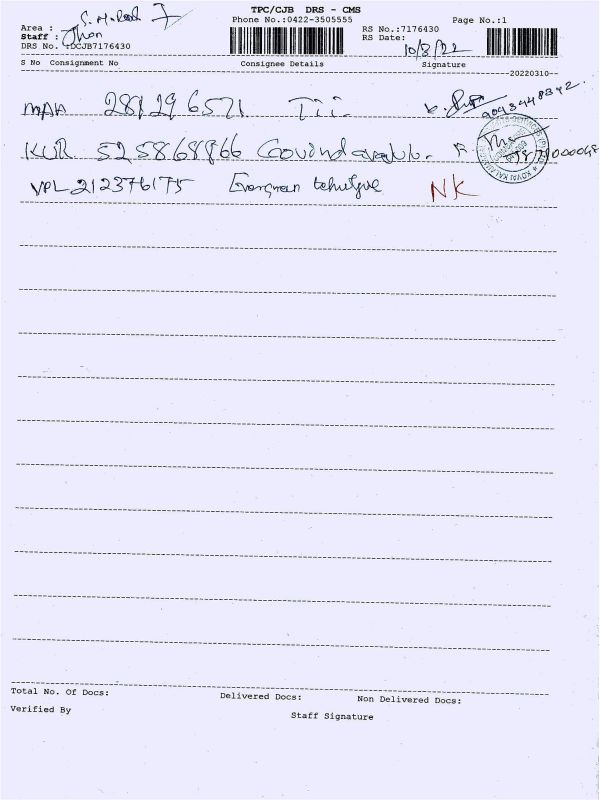 TPC/CJB DRS - CMS
Phone No.:0422-3505555
Page No.:1
Area :
Staff :
DRS No. :DCJB7176430
RS No.:7176430
RS Date: 10/3/22
S No Consignment No Consignee Details Signature
20220310
MAA 281296571 Tii.
KUR 525868966
VPL 212376175 Evergreen NK
Total No. Of Docs: Delivered Docs: Non Delivered Docs:
Verified By Staff Signature